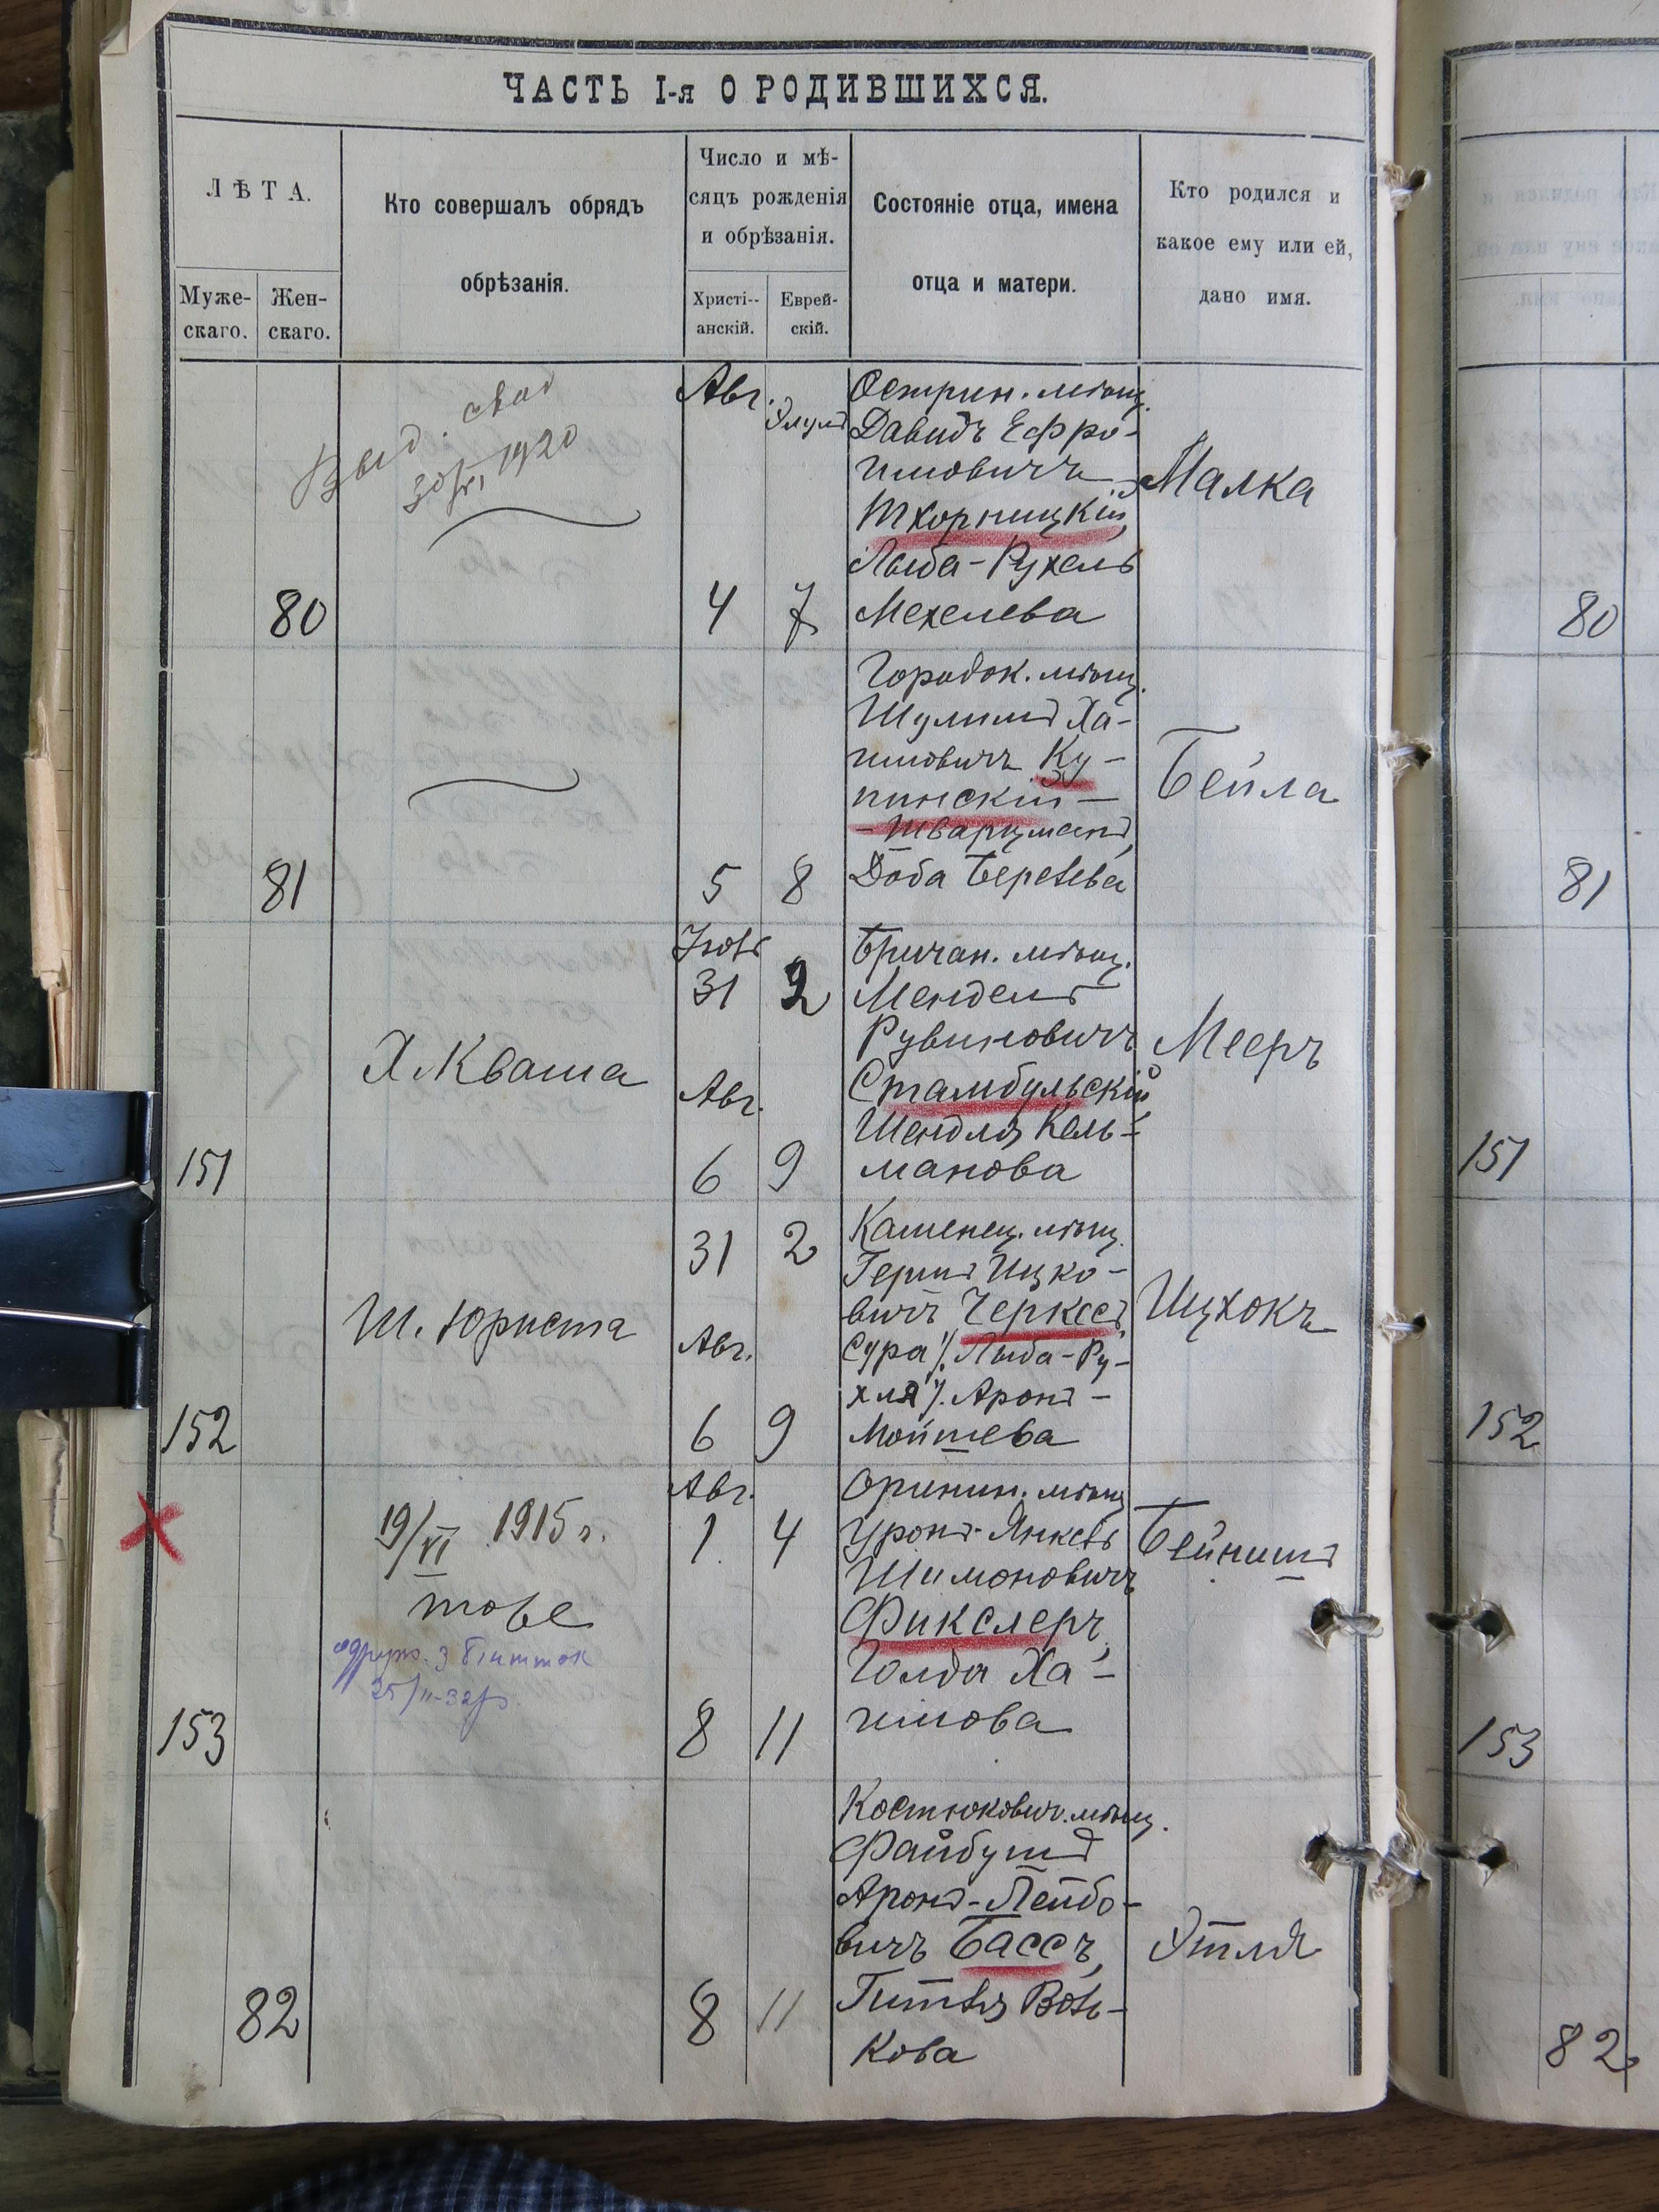 ЧАСТЬ I-я О РОДИВШИХСЯ.
ЛѢТА.
Муже-
скаго.
Жен-
скаго.
Кто совершалъ обрядъ
обрѣзанія.
Число и мѣ-
сяцъ рожденія
и обрѣзанія.
Христі--
анскій.
Еврей-
скій.
Состояніе отца, имена
отца и матери.
Кто родился и
какое ему или ей,
дано имя.
Выд. свид
30/VI 1920
80
Авг.
Элулъ
4
7
Острин. мѣщ.
Давидъ Ефро-
имовичъ
Тхорницкій,
Лыба-Рухель
Мехелева
Малка
80
81
5
8
Городок. мѣщ.
Шулимъ Ха-
имовичъ Ку-
пинскій-
-Шварцманъ,
Доба Берелева
Бейла
81
151
Х. Кваша
Іюль
31
2
Авг.
6
9
Бричан. мѣщ.
Мендель
Рувиновичъ
Стамбульскій,
Шендля Кель-
манова
Мееръ
151
152
Ш. Юриста
31
2
Авг.
6
9
Каменец. мѣщ.
Гершъ Ицко-
вичъ Черкесъ,
Сура /. Лыба-Ру-
хля /. Аронъ-
Мойшева
Ицхокъ
152
153
19/VI 1915 г.
тове
одруж. з
Авг.
1
4
8
11
Оринин. мѣщ.
Уронъ-Янкель
Шимоновичъ
Фикслеръ,
Голда Ха-
имова
Бейнишъ
153
82
8
11
Костюкович. мѣщ.
Файбушъ
Аронъ-Лейбо-
вичъ Бассъ,
Гитля Воль-
кова
Этля
82